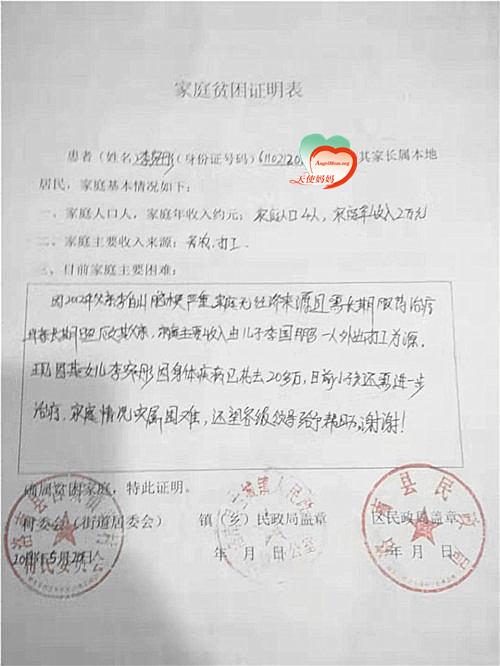 家庭贫困证明表
患者(姓名)李(身份证号码)61102120 其家长属本地
AngelMom.org
天使妈妈
居民,家庭基本情况如下:
一、家庭人口人,家庭年收入约元:家庭人口4人,家庭年收入2万元
二、家庭主要收入来源:务农.打工
三、目前家庭主要困难:
因2002年父亲李 脑梗严重,家庭无经济来源且需长期服药治疗
长期 家庭主要收入由儿子李国 一人外出打工为源.
现因其女儿李 彤因身体疾病已花去20多万,目前小孩还需进一步
治疗.家庭情况实属困难,还望各级领导给予帮助,谢谢!
属贫困家庭,特此证明。
村委会(街道居委会) 镇(乡)民政局盖章 区民政局盖章
年5月20日 年 月 日 年 月 日